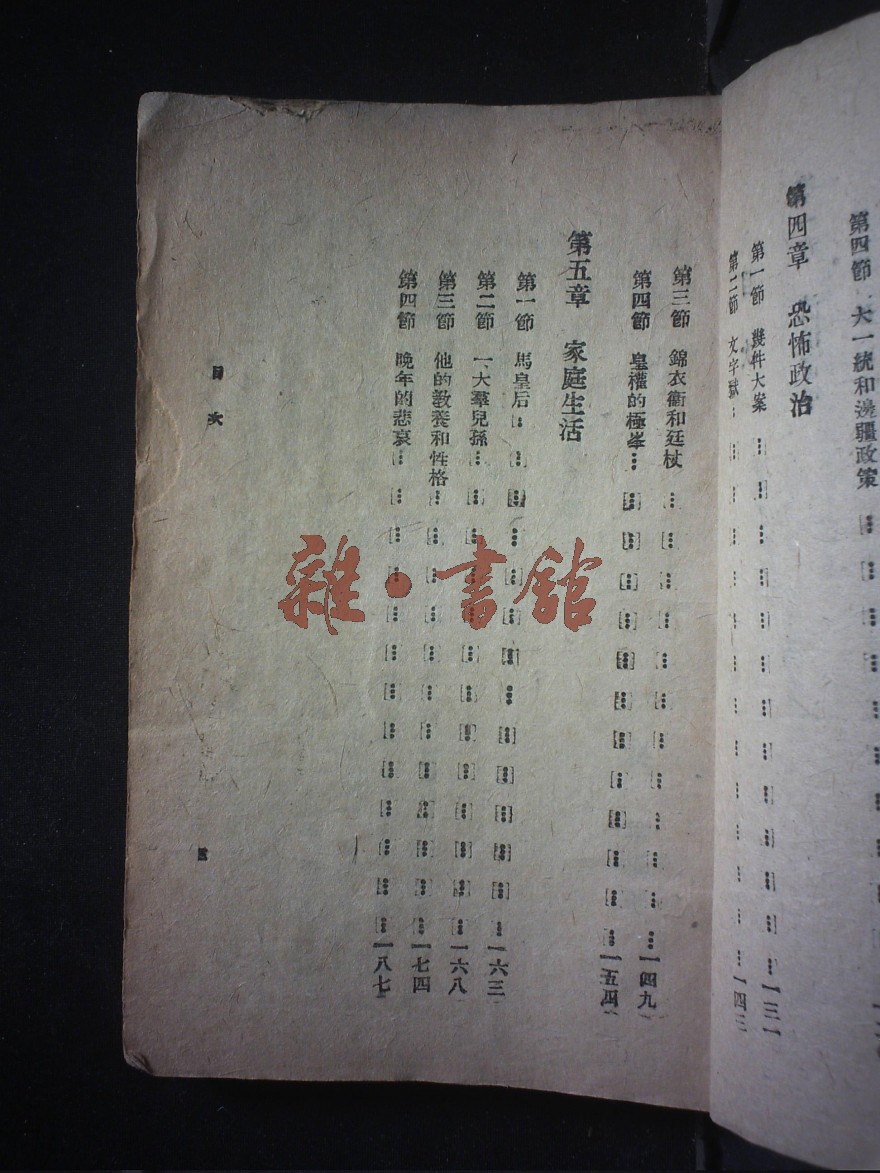 第四節 大一統和邊疆政策
第四章 恐怖政治
第一節 幾件大案
第二節 文字獄 一四三
第三節 錦衣衞和廷杖 一四九
第四節 皇權的極峯 一五四
第五章 家庭生活
第一節 馬皇后 一六三
第二節 一大羣兒孫 一六八
第三節 他的教養和性格 一七四
第四節 晚年的悲哀 一八七
目次
雜·書館